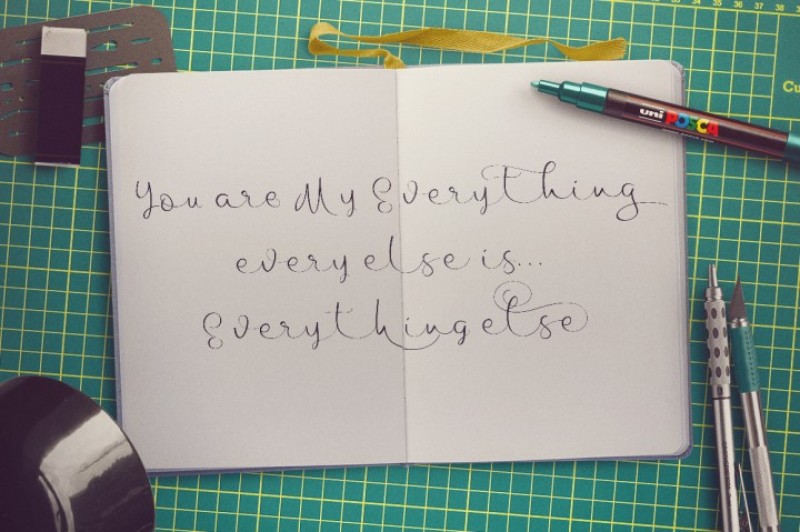 36 37 38
Cu
uni POSCA
You are My Everything
every else is...
Everything else